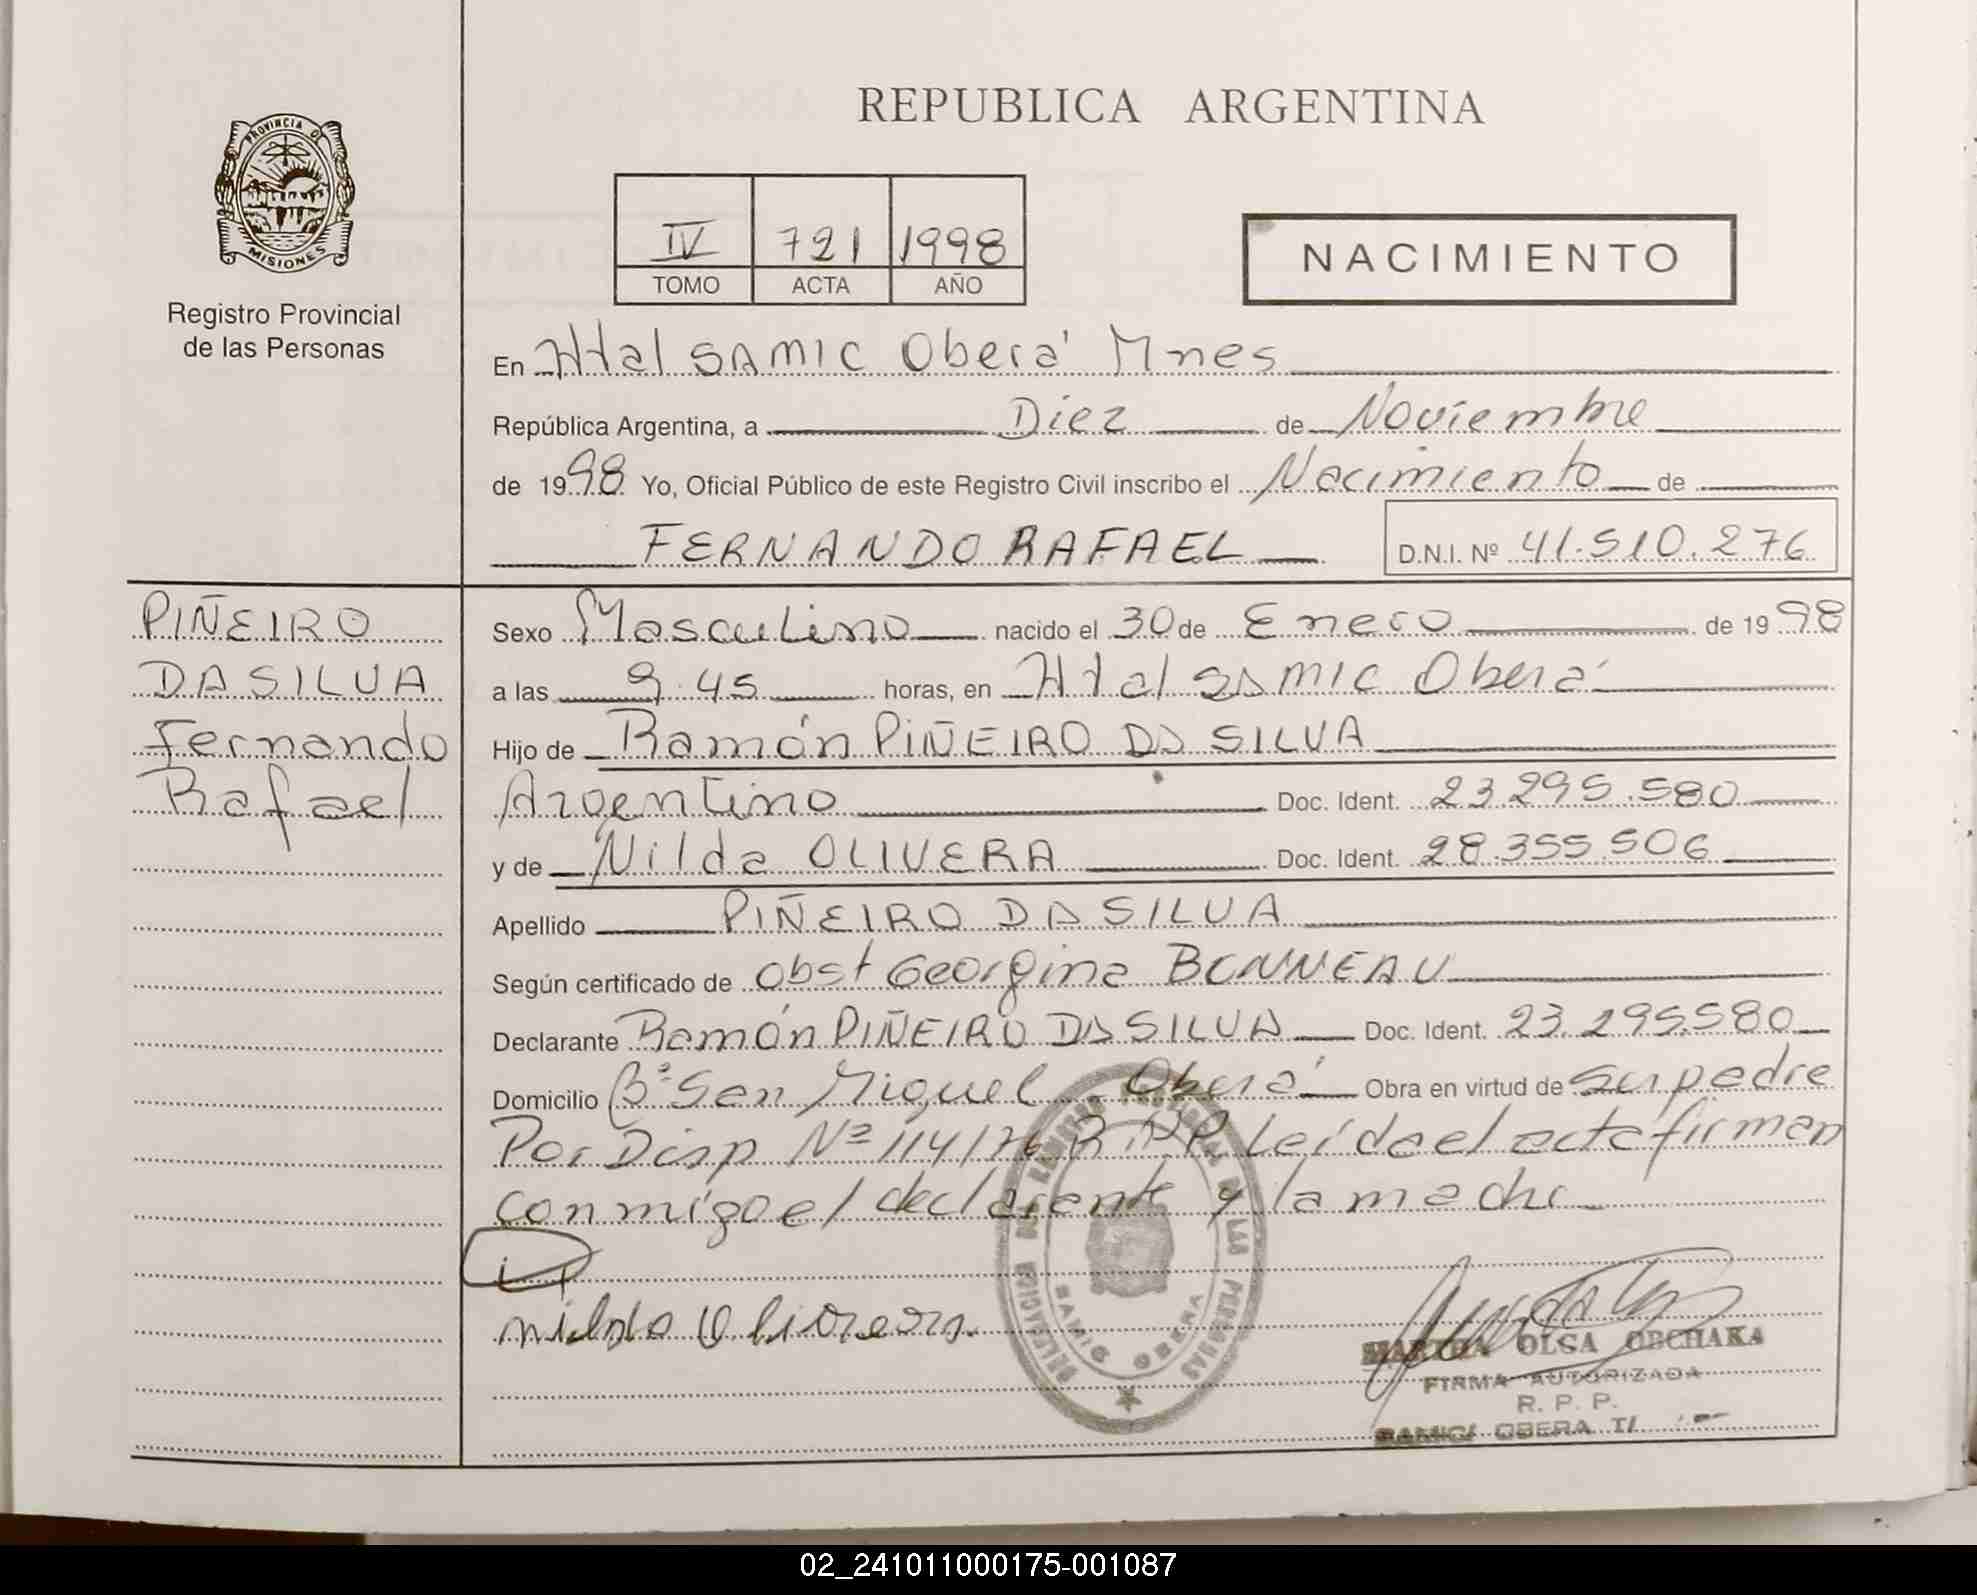 REPUBLICA ARGENTINA
PROVINCIA D
MISIONES
Registro Provincial
de las Personas
IV 721 1998
TOMO ACTA AÑO
NACIMIENTO
En Htal SAMIC Oberá Mnes
República Argentina, a Diez de Noviembre
de 1998 Yo, Oficial Público de este Registro Civil inscribo el Nacimiento de
FERNANDO RAFAEL D.N.I. Nº 41.510.276
PIÑEIRO
DA SILVA
Fernando
Rafael
Sexo Masculino nacido el 30 de Enero de 1998
a las 9.45 horas, en Htal SAMIC Oberá
Hijo de Ramón PIÑEIRO DA SILVA
Argentino Doc. Ident. 23.295.580
y de Nilda OLIVERA Doc. Ident. 28.355.506
Apellido PIÑEIRO DA SILVA
Según certificado de Obst Georgina BONNEAU
Declarante Ramón PIÑEIRO DA SILVA Doc. Ident. 23.295.580
Domicilio Bº San Miguel Oberá Obra en virtud de ser padre
Por Disp Nº 114/76 Leída el acta firman
conmigo el declarante y la madre
DELEGACION DEL REGISTRO PROVINCIAL DE LAS PERSONAS
SAMIC OBERA
MARTHA OLGA OBCHAKA
FIRMA AUTORIZADA
R. P. P.
SAMIC/ OBERA
02_241011000175-001087